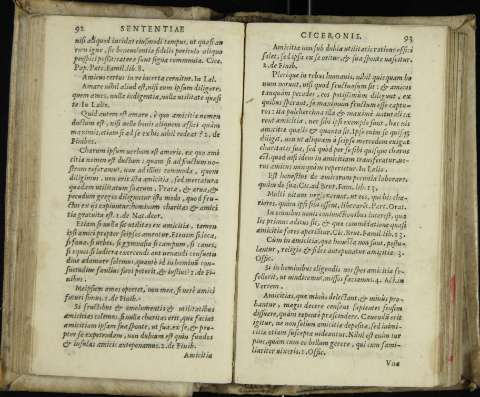 92 SENTENTIAE
nisi aliquod incidat eiusmodi tempus, ut quasi au
rum igne, sic beneuolentia fidelis periculo aliquo
perspici possit: cætera sunt signa communia. Cice.
Pap. Pæt. Famil. lib. 8.
Amicus certus in re incerta cernitur. In Læl.
Amare nihil aliud est, nisi eum ipsum diligere,
quem ames, nulla indigentia, nulla utilitate quæsi
ta. In Lælio.
Quid autem est amare, è quo amicitiæ nomen
ductum est, nisi uelle bonis aliquem affici quàm
maximis, etiam si ad se ex his nihil redeat? 2. de
Finibus.
Charum ipsum uerbum est amoris, ex quo ami
citiæ nomen est ductum: quam si ad fructum no-
strum referamus, non ad illius commoda, quem
diligimus, non erit ista amicitia, sed mercatura
quædam utilitatum suarum. Prata, & arua, &
pecudum greges diliguntur isto modo, quod fru-
ctus ex iis capiuntur: hominum charitas & amici
tia gratuita est. 1. de Nat. deor.
Etiam si nulla sit utilitas ex amicitia, tamen
ipsi amici propter seipsos amentur. Etenim si loca,
si fana, si urbes, si gymnasia, si campum, si canes,
si equos, si ludicra exercendi aut uenandi consuetu
dine adamare solemus, quantò id in hominũ con-
suetudine faciliùs fieri poterit, & iustiùs? 1. de Fi-
nibus.
Me ipsum ames oportet, non mea, si ueri amici
futuri sumus. 2. de Finib.
Si fructibus & emolumentis & utilitatibus
amicitias colemus, si nulla charitas erit, quæ faciat
amicitiam ipsam sua sponte, ui sua, ex se, & pro-
pter se expetendam, non dubium est quin fundos
& insulas amicis anteponamus. 2. de Finib.
Amicitia
CICERONIS. 93
Amicitia non sub dubia utilitatis ratione effici
solet, sed ipsa ex se oritur, & sua sponte nascitur.
2. de Finib.
Plerique in rebus humanis, nihil quicquam bo
num norunt, nisi quod fructuosum sit: & amicos
tanquam pecudes, eos potissimùm diligunt, ex
quibus sperant, se maximum fructum esse captu-
ros: ita pulcherrima illa & maximè naturali ca
rent amicitia, nec sibi ipsi exemplo sunt, hæc uis
amicitiæ qualis & quanta sit. Ipse enim se quisque
diligit, non ut aliquam à seipso mercedem exigat
charitatis suæ, sed quòd per se sibi quisque charus
est: quod nisi idem in amicitiam transferatur, ue-
rus amicus nunquàm reperietur. In Lælio.
Est honestius de amicorum pecunia laborare,
quàm de sua. Cic. ad Brut. Fam. lib. 13.
In omnibus nouis coniunctionibus interest, qua
lis primus aditus sit, & qua commendatione quasi
amicitiæ fores aperiantur. Cic. Bruto Famil. lib. 13.
Cùm in amicitia, quæ honesta non sunt, postu-
lantur, religio & fides anteponatur amicitiæ. 3.
Offic.
Si in hominibus eligendis nos spes amicitiæ fe-
fellerit, ut uindicemus, missos faciamus. 4. Act. in
Verrem.
Amicitias, quæ minùs delectant, & minùs pro-
bantur, magis decere censent sapientes sensim
dissuere, quàm repentè præscindere. Cauendũ erit
igitur, ne non solùm amicitiæ depositæ, sed inimi-
citiæ etiam susceptæ uideantur. Nihil est enim tur
pius, quàm cum eo bellum gerere, qui cum fami-
liariter uixeris. 2. Offic.
Vna